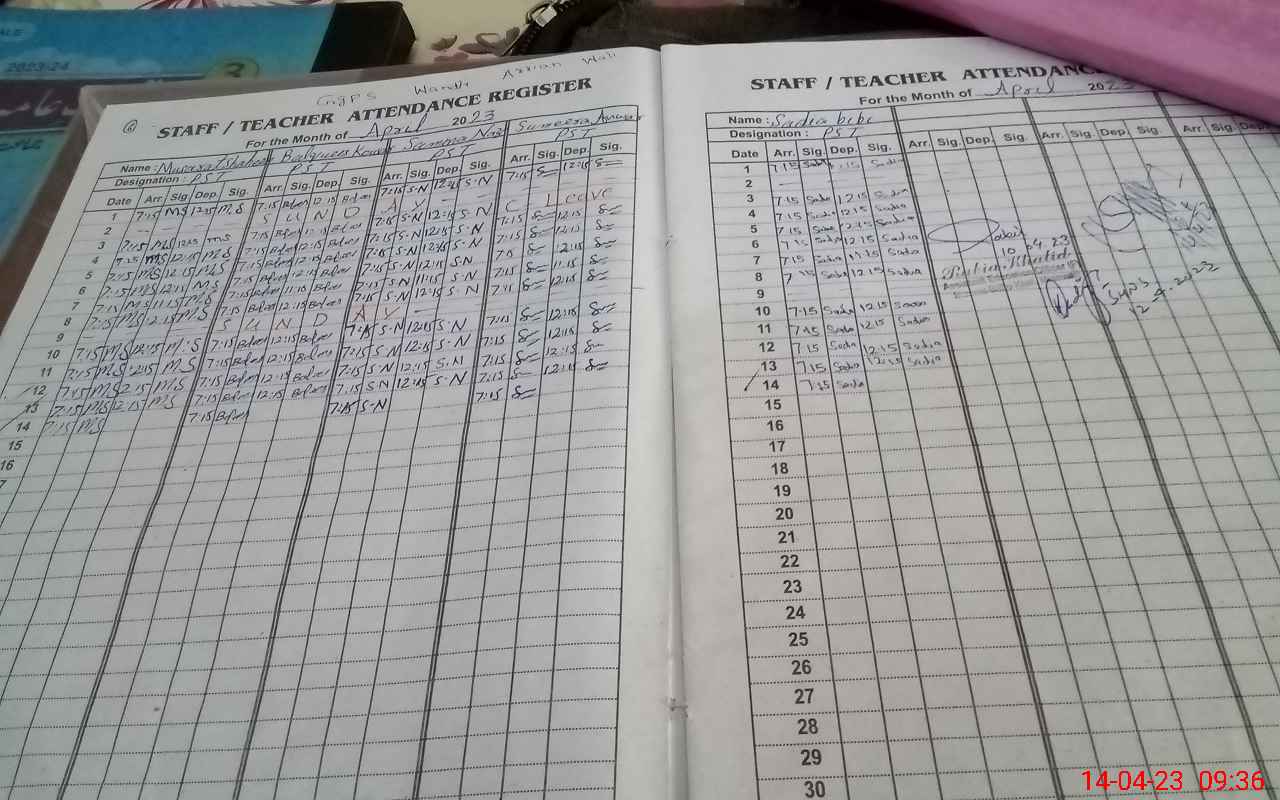 2023-24
3
GGPS Wanda Arsian Wali
STAFF / TEACHER ATTENDANCE REGISTER
For the Month of April 2023
Name :
Balqees Kowsar
Samina Naz
Sumeera Anwar
Designation : PST
PST
PST
PST
Date Arr. Sig Dep. Sig. Arr. Sig. Dep. Sig. Arr. Sig. Dep. Sig. Arr. Sig. Dep. Sig.
1 7:15 M.S 12:15 M.S 7:15 12:15 7:15 S.N 12:15 S.N 7:15 12:15
2 S U N D A Y C Leave
3 7:15 M.S 12:15 M.S 7:15 12:15 7:15 S.N 12:15 S.N 7:15 12:15
4 7:15 M.S 12:15 M.S 7:15 12:15 7:15 S.N 12:15 S.N 7:15 12:15
5 7:15 M.S 12:15 M.S 7:15 12:15 7:15 S.N 12:15 S.N 7:15 12:15
6 7:15 M.S 12:15 M.S 7:15 12:15 7:15 S.N 12:15 S.N
7 7:15 M.S 11:15 M.S 7:15 11:15 7:15 S.N 11:15 S.N 7:15 11:15
8 7:15 M.S 12:15 M.S 7:15 12:15 7:15 S.N 12:15 S.N 12:15
9 S U N D A Y
10 7:15 M.S 12:15 M.S 7:15 12:15 7:15 S.N 12:15 S.N 7:15 12:15
11 7:15 M.S 12:15 M.S 7:15 12:15 7:15 S.N 12:15 S.N 7:15 12:15
12 7:15 M.S 12:15 M.S 7:15 12:15 7:15 S.N 12:15 S.N 7:15 12:15
13 7:15 M.S 12:15 M.S 7:15 12:15 7:15 S.N 12:15 S.N 7:15 12:15
14 7:15 M.S 7:15 7:15 S.N 7:15
15
16
7
STAFF / TEACHER ATTENDANC
For the Month of April 2023
Name : Sadia bibi
Designation : PST
Date Arr. Sig. Dep. Sig. Arr. Sig. Dep. Sig. Arr. Sig. Dep. Sig. Arr. Sig. Dep
1 7:15 Sadia 12:15 Sadia
2
3 7:15 Sadia 12:15 Sadia
4 7:15 Sadia 12:15 Sadia
5 7:15 Sadia 12:15 Sadia
6 7:15 Sadia 12:15 Sadia
7 7:15 Sadia 11:15 Sadia
8 7:15 Sadia 12:15 Sadia
9
10 7:15 Sadia 12:15 Sadia
11 7:15 Sadia 12:15 Sadia
12 7:15 Sadia 12:15 Sadia
13 7:15 Sadia 12:15 Sadia
14 7:15 Sadia
15
16
17
18
19
20
21
22
23
24
25
26
27
28
29
30
10.04.23
Rabia Khalid
12.4.2023
14-04-23 09:36